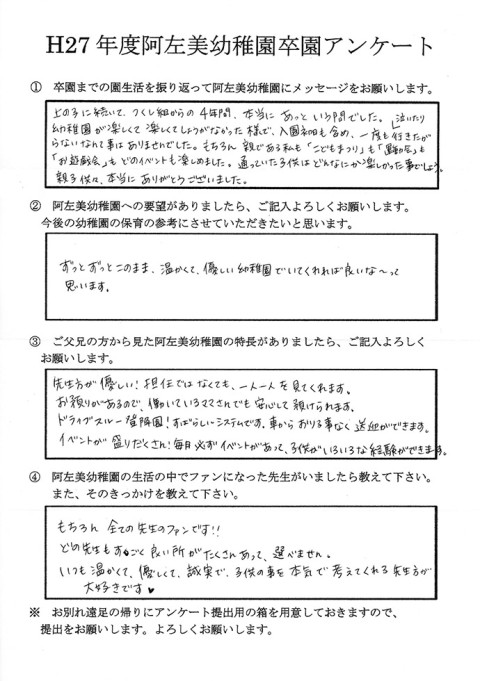 H27 年度阿左美幼稚園卒園アンケート
① 卒園までの園生活を振り返って阿左美幼稚園にメッセージをお願いします。
上の子に続いて、つくし組からの4年間、本当にあっという間でした。
幼稚園が楽しくて楽しくてしょうがなかった様で、入園初日も含め、一度も「泣いたり行きたが
らないなんて事はありませんでした。もちろん親である私も「こどもまつり」も「運動会」も
「お遊戯会」もどのイベントも楽しめました。通っていた子供はどんなにか楽しかった事でしょう。
親子供々、本当にありがとうございました。
② 阿左美幼稚園への要望がありましたら、ご記入よろしくお願いします。
今後の幼稚園の保育の参考にさせていただきたいと思います。
ずっとずっとこのまま、温かくて、優しい幼稚園でいてくれれば良いな〜って
思います。
③ ご父兄の方から見た阿左美幼稚園の特長がありましたら、ご記入よろしく
お願いします。
先生方が優しい!担任ではなくても、一人一人を見てくれます。
お預りがあるので、働いているママさんでも安心して預けられます。
ドライブスルー登降園!すばらしいシステムです。車からおりる事なく送迎ができます。
イベントが盛りだくさん!毎月必ずイベントがあって、子供がいろいろな経験ができます。
④ 阿左美幼稚園の生活の中でファンになった先生がいましたら教えて下さい。
また、そのきっかけを教えて下さい。
もちろん全ての先生のファンです!!
どの先生もすごく良い所がたくさんあって、選べません。
いつも温かくて、優しくて、誠実で、子供の事を本気で考えてくれる先生方が
大好きです♥
※ お別れ遠足の帰りにアンケート提出用の箱を用意しておきますので、
提出をお願いします。よろしくお願いします。